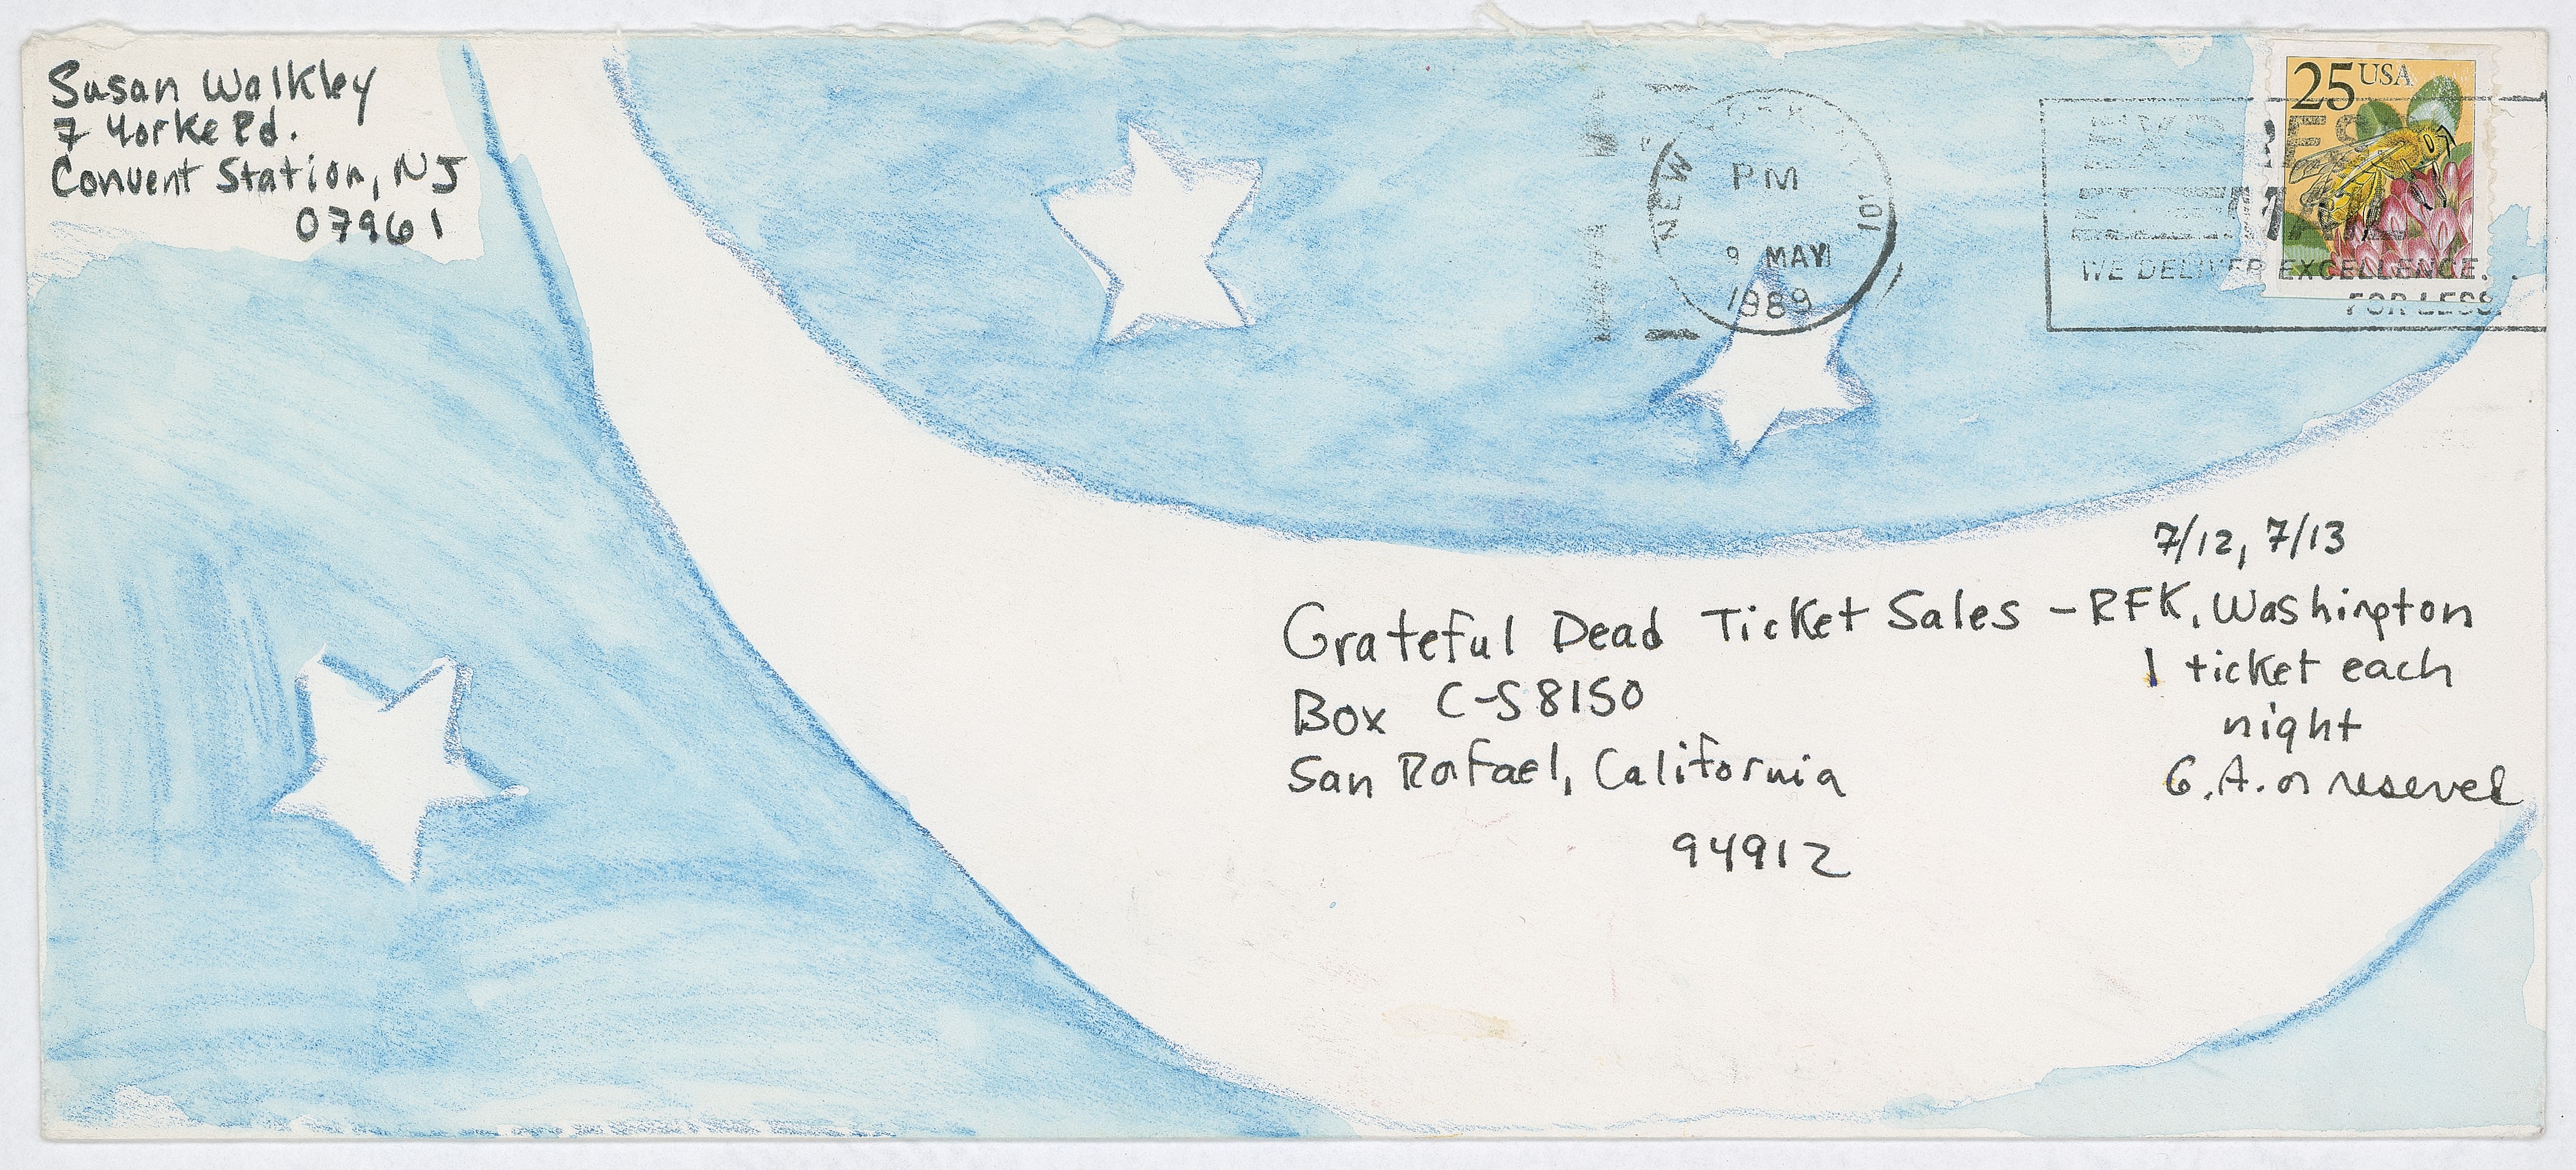 Susan Walkley
7 Yorke Rd.
Convent Station, NJ
07961
NEW YORK
PM
9 MAY
1989
101
25 USA
EXPRESS
MAIL
WE DELIVER EXCELLENCE...
FOR LESS.
7/12, 7/13
Grateful Dead Ticket Sales - RFK, Washington
Box C-S8150
San Rafael, California
94912
1 ticket each
night
G.A. or reserved